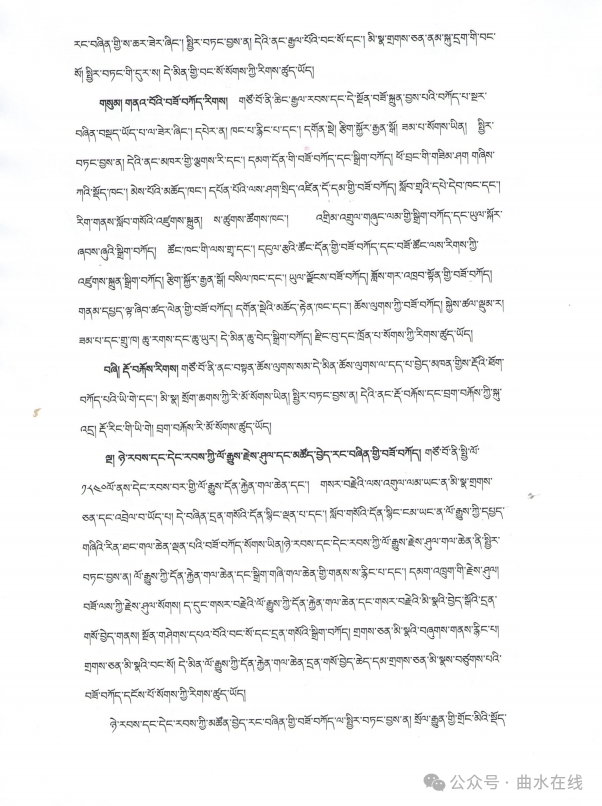 རང་བཞིན་གྱི་ས་ཆར་ཟེར་ཞིང་། སྤྱིར་བཏང་བྱས་ན། དེའི་ནང་རྒྱལ་པོའི་བང་སོ་དང་། མི་སྣ་གྲགས་ཅན་ནམ་སྐུ་དྲག་གི་བང་
སོ། སྤྱིར་བཏང་གི་དུར་ས། དེ་མིན་གྱི་བང་སོ་སོགས་ཀྱི་རིགས་ཚུད་ཡོད།
གསུམ། གནའ་བོའི་བཟོ་བཀོད་རིགས། གཙོ་བོ་ནི་ཆིང་རྒྱལ་རབས་དང་དེ་སྔོན་བཟོ་སྐྲུན་བྱས་པའི་བཀོད་པ་སྔར་
བཞིན་བསྡད་ཡོད་པ་ལ་ཟེར་ཞིང་། དཔེར་ན། ཁང་པ་རྙིང་པ་དང་། དགོན་སྡེ། རྩིག་སྐྱོར་རྒྱན་སྒོ། ཟམ་པ་སོགས་ཡིན། སྤྱིར་
བཏང་བྱས་ན། དེའི་ནང་མཁར་གྱི་ལྕགས་རི་དང་། དམག་དོན་གི་བཟོ་བཀོད་དང་སྒྲིག་བཀོད། ཕོ་བྲང་གི་གཟིམ་ཤག གཞིས་
ཀའི་སྡོད་ཁང་། མེས་པོའི་མཆོད་ཁང་། དཔོན་པོའི་ལས་ཤག་སྲིད་འཛིན་དོ་དམ་གྱི་བཟོ་བཀོད། སློབ་གྲྭའི་དཔེ་དེབ་ཁང་དང་།
རིག་གནས་སློབ་གསོའི་འཛུགས་སྐྲུན། ས་ཚུགས་ཚོགས་ཁང་། འགྲིམ་འགྲུལ་གཞུང་ལམ་གྱི་སྒྲིག་བཀོད་དང་ཡུལ་སྐོར་
ཞབས་ཞུའི་སྒྲིག་བཀོད། ཚོང་ཁང་གི་ལས་གྲྭ་དང་། དངུལ་རྩའི་ཚོང་དོན་གྱི་བཟོ་བཀོད་དང་བཟོ་ཚོང་ལས་རིགས་ཀྱི་
འཛུགས་སྐྲུན་སྒྲིག་བཀོད། རྩིག་སྐྱོར་རྒྱན་སྒོ། བསིལ་ཁང་དང་། ཡུལ་ལྗོངས་བཟོ་བཀོད། ཟློས་གར་འཁྲབ་སྟོན་གྱི་བཟོ་བཀོད།
གནམ་དཔྱད་ལྟ་ཞིབ་ཚད་ལེན་གྱི་བཟོ་བཀོད། དགོན་སྡེའི་མཆོད་རྟེན་ཁང་དང་། ཆོས་ལུགས་ཀྱི་བཟོ་བཀོད། སྐྱེས་ཚལ་ལྡུམ་ར།
ཟམ་པ་དང་གྲུ་ཁ། ཆུ་རགས་དང་ཆུ་ཡུར། དེ་མིན་ཆུ་བེད་སྒྲིག་བཀོད། རྫིང་བུ་དང་ཁྲོན་པ་སོགས་ཀྱི་རིགས་ཚུད་ཡོད།
བཞི། རྡོ་བརྐོས་རིགས། གཙོ་བོ་ནི་ནང་བསྟན་ཆོས་ལུགས་སམ་དེ་མིན་ཆོས་ལུགས་ལ་དད་པ་བྱེད་མཁན་གྱིས་རྡོའི་ཐོག་
བཀོད་པའི་ཡི་གེ་དང་། མི་སྣ། སྲོག་ཆགས་ཀྱི་རི་མོ་སོགས་ཡིན། སྤྱིར་བཏང་བྱས་ན། དེའི་ནང་རྡོ་བརྐོས་དང་བྲག་བརྐོས་ཀྱི་སྐུ་
འདྲ། རྡོ་རིང་གི་ཡི་གེ། བྲག་བརྐོས་རི་མོ་སོགས་ཚུད་ཡོད།
ལྔ། ཉེ་རབས་དང་དེང་རབས་ཀྱི་ལོ་རྒྱུས་རྗེས་ཤུལ་དང་མཚོན་བྱེད་རང་བཞིན་གྱི་བཟོ་བཀོད། གཙོ་བོ་ནི་སྤྱི་ལོ་
༡༨༤༠ལོ་ནས་དེང་རབས་བར་གྱི་ལོ་རྒྱུས་དོན་རྐྱེན་གལ་ཆེན་དང་། གསར་བརྗེའི་ལས་འགུལ་ལམ་ཡང་ན་མི་སྣ་གྲགས་
ཅན་དང་འབྲེལ་བ་ཡོད་པ། དེ་བཞིན་དྲན་གསོའི་དོན་སྙིང་ལྡན་པ་དང་། སློབ་གསོའི་དོན་སྙིང་ངམ་ཡང་ན་ལོ་རྒྱུས་ཀྱི་དཔྱད་
གཞིའི་རིན་ཐང་གལ་ཆེན་ལྡན་པའི་བཟོ་བཀོད་སོགས་ཡིན།ཉེ་རབས་དང་དེང་རབས་ཀྱི་ལོ་རྒྱུས་རྗེས་ཤུལ་གལ་ཆེན་ནི་སྤྱིར་
བཏང་བྱས་ན། ལོ་རྒྱུས་ཀྱི་དོན་རྐྱེན་གལ་ཆེན་དང་སྒྲིག་གཞི་གལ་ཆེན་གྱི་གནས་ས་རྙིང་པ་དང་། དམག་འཁྲུག་གི་རྗེས་ཤུལ།
བཟོ་ལས་ཀྱི་རྗེས་ཤུལ་སོགས། ད་དུང་གསར་བརྗེའི་ལོ་རྒྱུས་ཀྱི་དོན་རྐྱེན་གལ་ཆེན་དང་གསར་བརྗེའི་མི་སྣའི་བྱེད་སྒོའི་དྲན་
གསོ་བྱེད་གནས། སྔོན་གཤེགས་དཔའ་བོའི་བང་སོ་དང་དྲན་གསོའི་སྒྲིག་བཀོད། གྲགས་ཅན་མི་སྣའི་བཞུགས་གནས་རྙིང་པ།
གྲགས་ཅན་མི་སྣའི་བང་སོ། དེ་མིན་ལོ་རྒྱུས་ཀྱི་དོན་རྐྱེན་གལ་ཆེན་དྲན་གསོ་བྱེད་ཆེད་དམ་གྲགས་ཅན་མི་སྣས་བཙུགས་པའི་
བཟོ་བཀོད་དངོས་པོ་སོགས་ཀྱི་རིགས་ཚུད་ཡོད།
ཉེ་རབས་དང་དེང་རབས་ཀྱི་མཚོན་བྱེད་རང་བཞིན་གྱི་བཟོ་བཀོད་ལ་སྤྱིར་བཏང་བྱས་ན། སྲོལ་རྒྱུན་གྱི་གྲོང་མིའི་སྡོད་
公众号 · 曲水在线